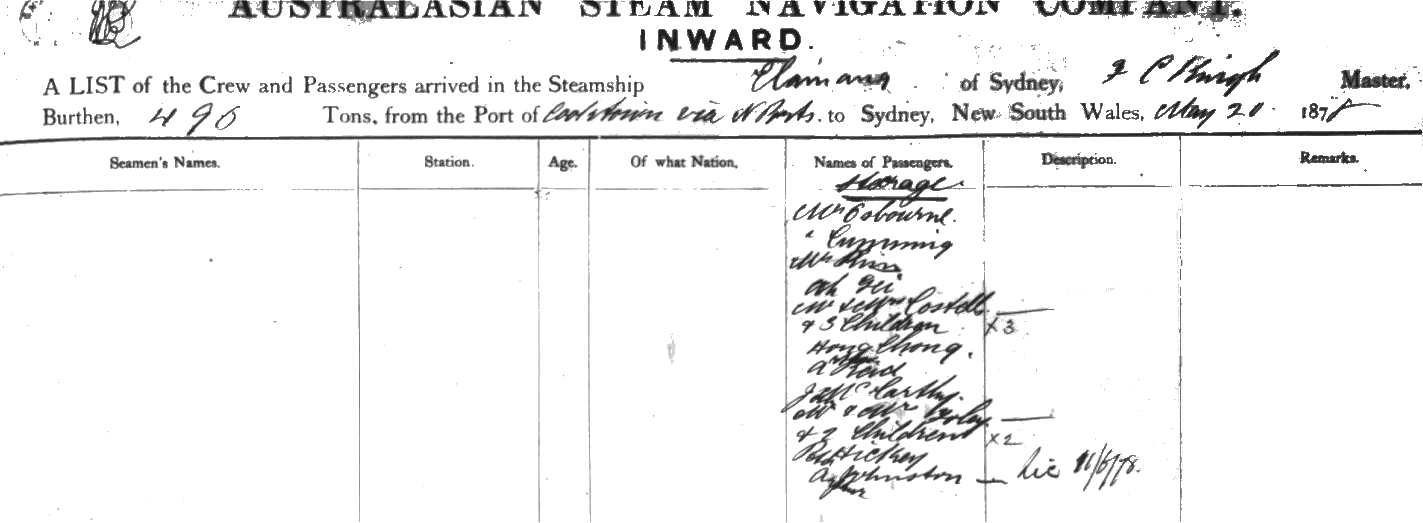 AUSTRALASIAN STEAM NAVIGATION COMPANY.
INWARD.
A LIST of the Crew and Passengers arrived in the Steamship of Sydney, F C Master.
Burthen, 496 Tons, from the Port of Cooktown via N Ports. to Sydney, New South Wales, May 20 1878
Seamen's Names. Station. Age. Of what Nation. Names of Passengers. Description. Remarks.
Steerage.
Mrs Osbourne.
" Cumming
Mrs
Ah
Mr & Mrs Costello
& 3 Children x3
Hong Chong.
A Reid
McCarthy.
Mr & Mrs
& 2 Children x2
Hickey
A Johnston — 11/6/78.